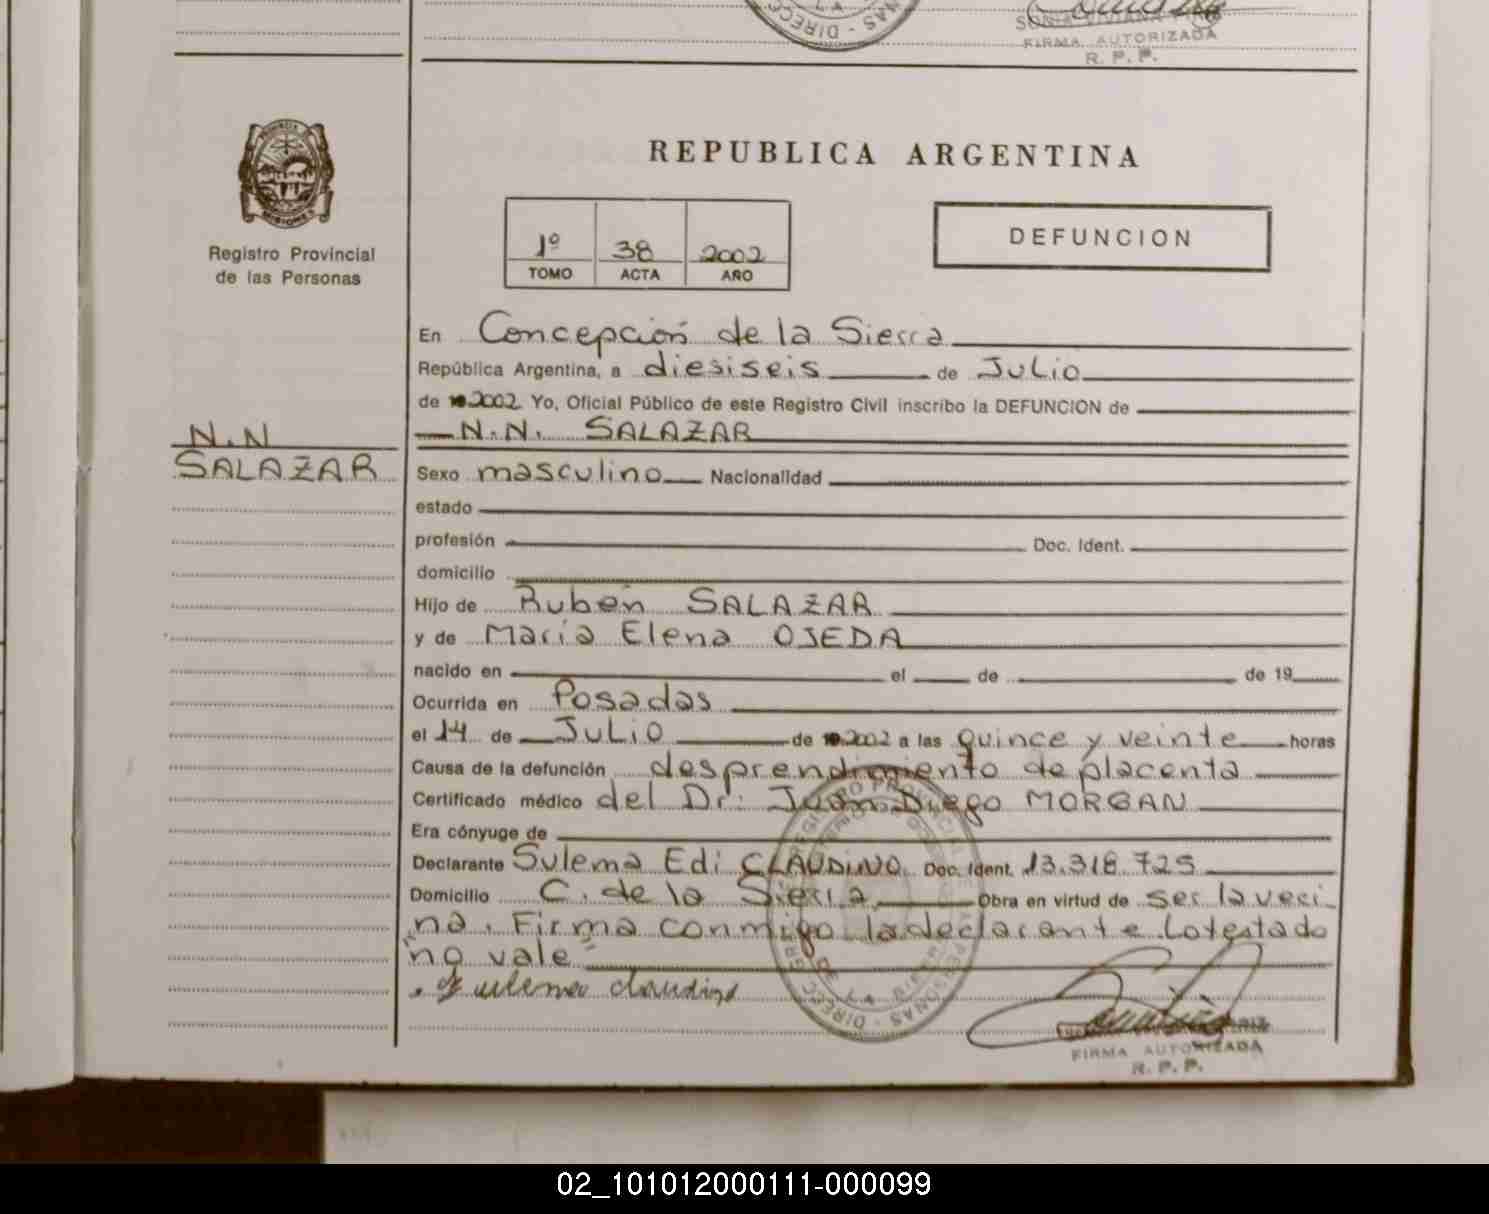 DIRECC
NAS
FIRMA AUTORIZADA
R. P. P.
PROVINCIA DE
MISIONES
Registro Provincial
de las Personas
REPUBLICA ARGENTINA
1º 38 2002
TOMO ACTA AÑO
DEFUNCION
En Concepción de la Sierra
República Argentina, a diesiseis de Julio
de 2002 Yo, Oficial Público de este Registro Civil inscribo la DEFUNCION de
N.N
SALAZAR
N.N. SALAZAR
Sexo masculino Nacionalidad
estado
profesión Doc. Ident.
domicilio
Hijo de Ruben SALAZAR
y de Maria Elena OJEDA
nacido en el de de 19
Ocurrida en Posadas
el 14 de Julio de 2002 a las quince y veinte horas
Causa de la defunción desprendimiento de placenta
Certificado médico del Dr. Juan Diego MORGAN
Era cónyuge de
Declarante Sulema Edi CLAUDINO Doc. Ident. 13.318.725
Domicilio C. de la Sierra Obra en virtud de ser la veci
na. Firma conmigo la declarante. Lo testado
"no vale"
FIRMA AUTORIZADA
R. P. P.
02_101012000111-000099